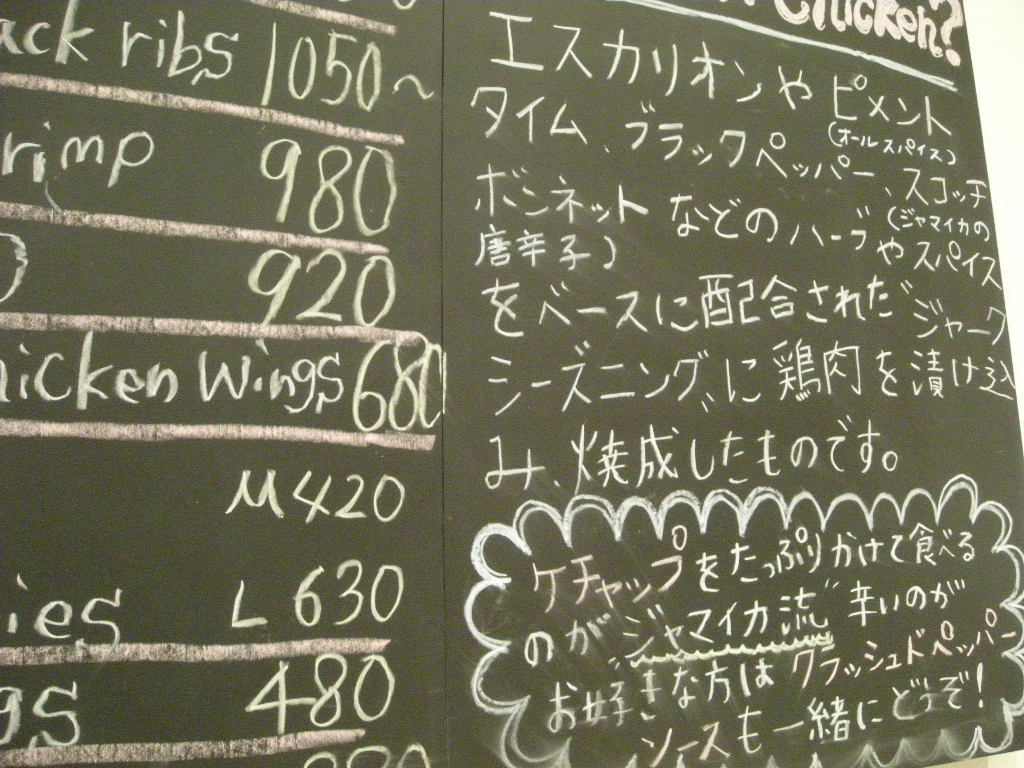 ack ribs 1050~
rimp 980
920
hicken wings 680
M420
ies L 630
gs 480
Chicken?
エスカリオンや ピメント
(オールスパイス)
タイム、ブラックペッパー、スコッチ
ボンネット などの ハーブやスパイス
(ジャマイカの
唐辛子)
をベースに配合された ジャーク
シーズニングに 鶏肉を漬け込
み、焼成したものです。
ケチャップをたっぷりかけて食べる
のが "ジャマイカ流" 辛いのが
お好きな方は クラッシュドペッパー
ソースも一緒にどうぞ!